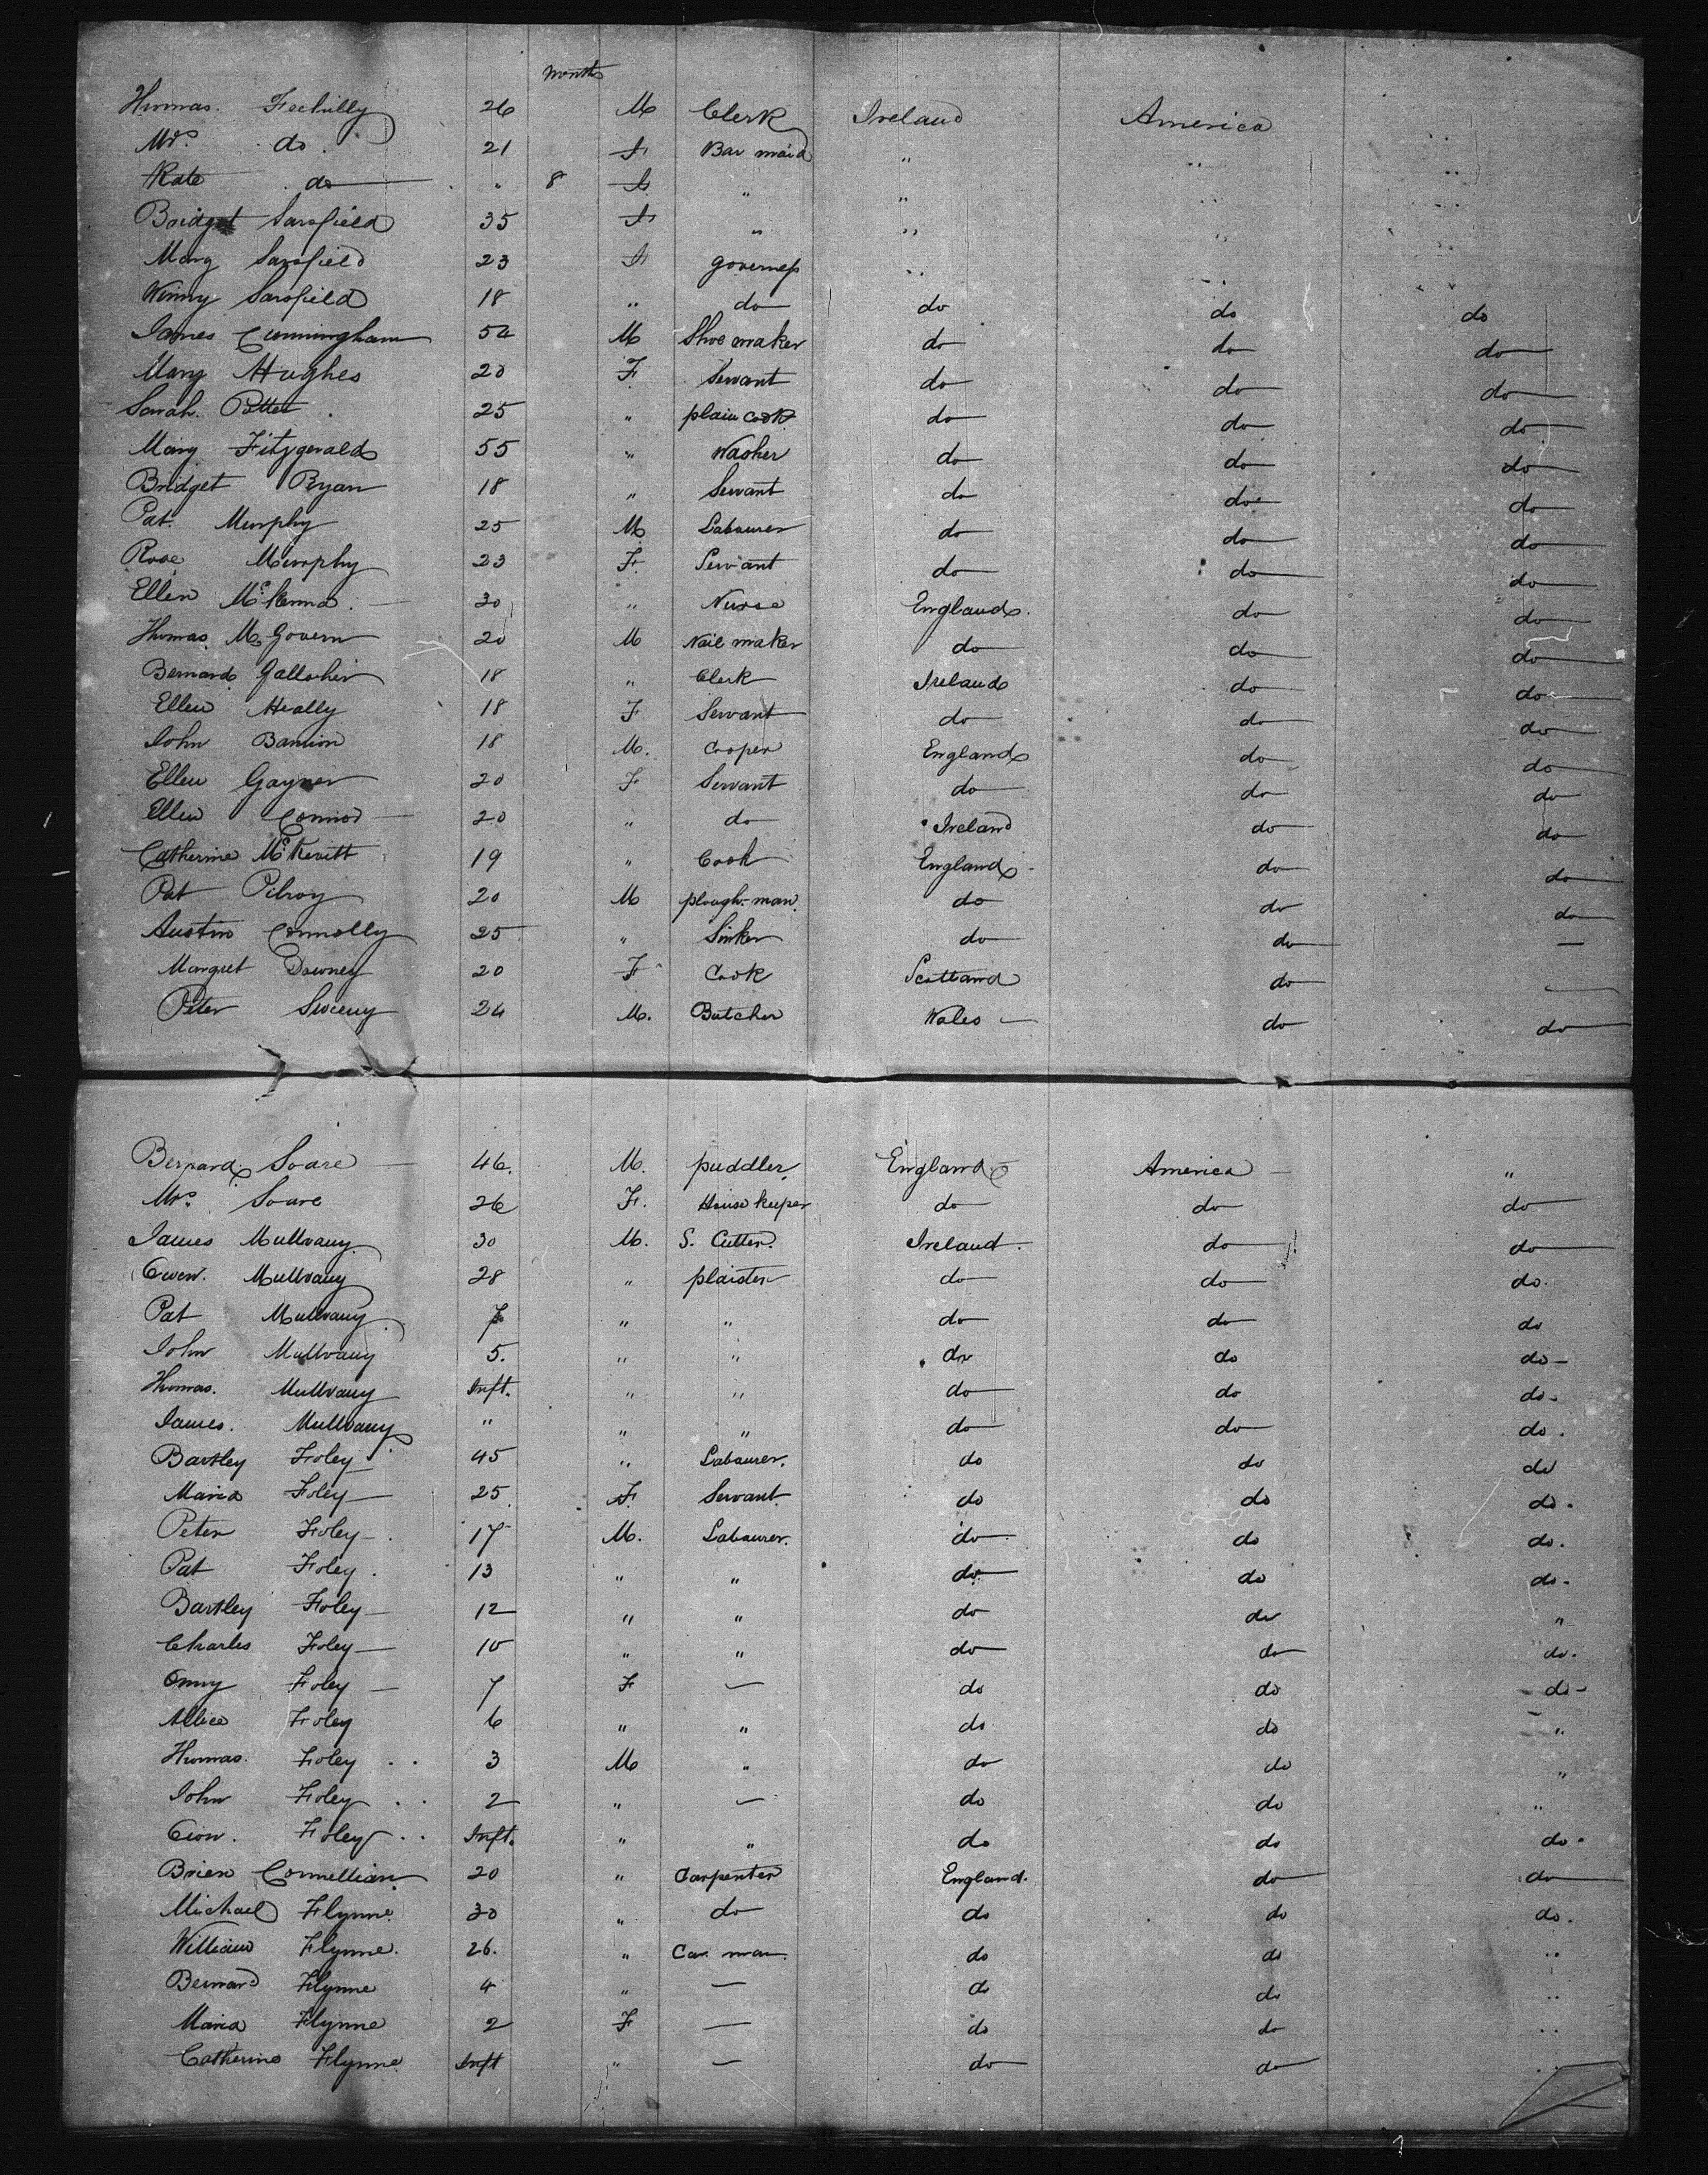 months
Thomas. Feehilly 26 M Clerk Ireland America
Mrs. do. 21 F Bar maid " "
Kate do " 8 F " " "
Bridget Sarsfield 35 F " " "
Mary Sarsfield 23 F governess " "
Winny Sarsfield 18 " do do do do
James Cunningham 54 M Shoe maker do do do
Mary Hughes 20 F Servant do do do
Sarah. Potter 25 " plain cook do do do
Mary Fitzgerald 55 " Washer do do do
Bridget Ryan 18 " Servant do do do
Pat. Murphy 25 M Labourer do do do
Rose Murphy 23 F Servant do do do
Ellen McKenna. 30 " Nurse England. do do
Thomas McGovern 20 M Nail maker do do do
Bernard Gallocher 18 " Clerk Ireland do do
Ellen Heally 18 F Servant do do do
John Bannion 18 M. Cooper England do do
Ellen Gayner 20 F Servant do do do
Ellen Connor 20 " do Ireland do do
Catherine McKevitt 19 " Cook England do do
Pat Pilroy 20 M plough-man do do do
Austin Connolly 25 " Sinker do do —
Margret Downey 20 F Cook Scotland do —
Peter Sweeny 24 M. Butcher Wales do do
Bernard Soare 46. M. puddler England America "
Mrs. Soare 26 F. House keeper do do do
James Mullvany 30 M. S. Cutter. Ireland. do do
Owen. Mullvany 28 " plaister do do do.
Pat Mullvany 7 " " do do do
John Mullvany 5. " " do do do
Thomas. Mullvany Inft. " " do do do.
James. Mullvany " " " do do do.
Bartley Foley 45 " Labourer. do do do
Maria Foley 25 F. Servant do do do.
Peter Foley 17 M. Labourer. do do do.
Pat Foley. 13 " " do do do.
Bartley Foley 12 " " do do "
Charles Foley 10 " " do do do.
Foley 7 F — do do do
Allice Foley 6 " " do do "
Thomas. Foley 3 M " do do "
John Foley 2 " — do do "
Foley Inft. " " do do do.
Brien Connellian. 20 " Carpenter England. do do
Michael Flynne 30 " do do do do.
William Flynne. 26. " Car man. do do "
Bernard Flynne 4 " — do do "
Maria Flynne 2 F — do do "
Catherine Flynne Inft " — do do "